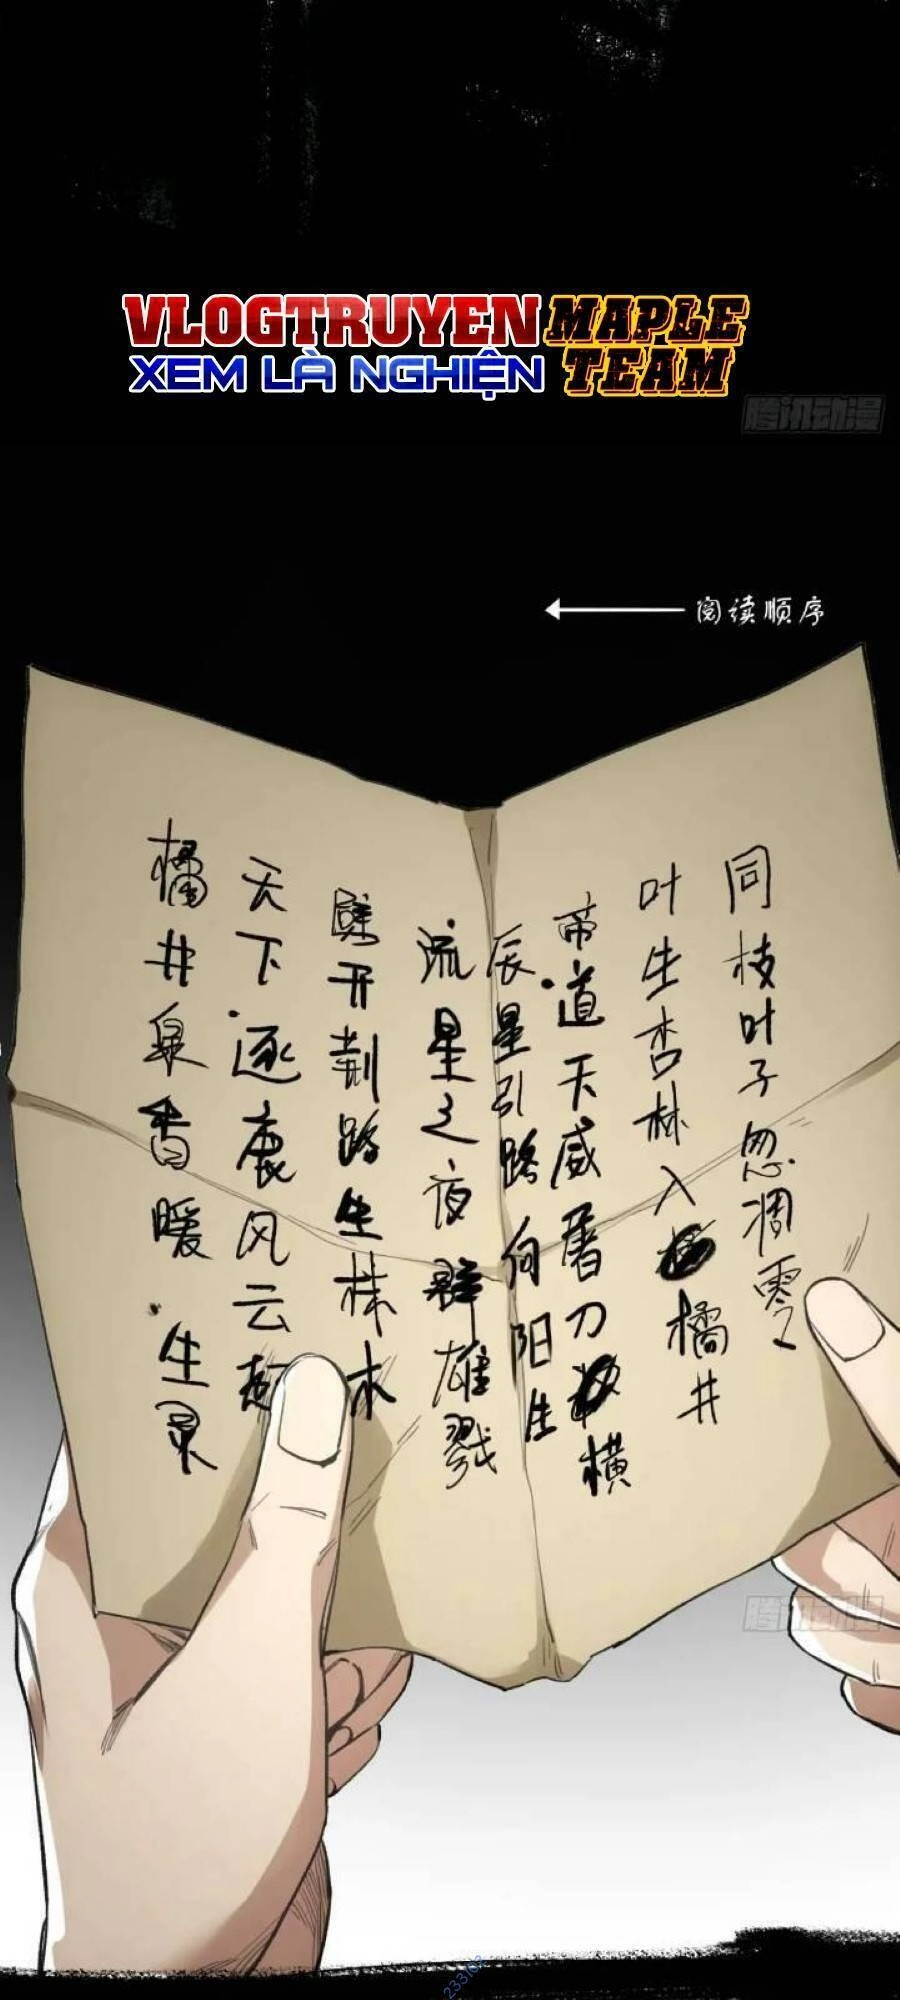 VLOGTRUYEN
XEM LÀ NGHIỆN
MAPLE
TEAM
腾讯动漫
阅读顺序
同枝叶子忽凋零
叶生杏林入橘井
帝道天威屠刀横
辰星引路向阳生
流星之夜群雄戮
劈开荆路生株木
天下逐鹿风云起
橘井泉香暖生灵
腾讯动漫
233102